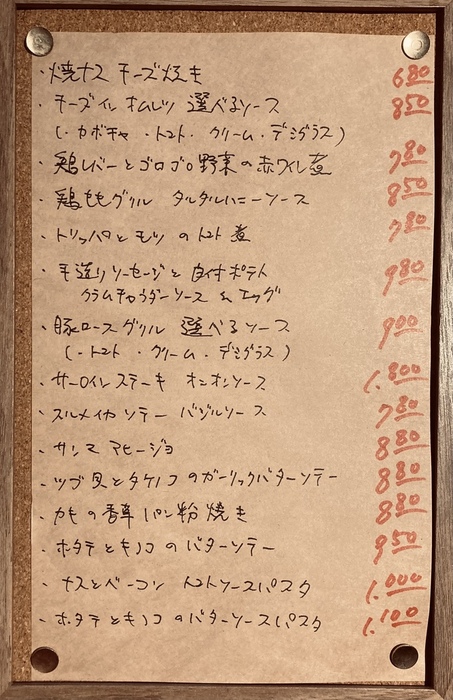 ・焼ナス チーズ焼き 680
・チーズイン オムレツ 選べるソース 850
(・カボチャ ・トマト・クリーム・デミグラス)
・鶏レバーとゴロゴロ野菜の赤ワイン煮 780
・鶏ももグリル タルタルハニーソース 850
・トリッパとモツのトマト煮 780
・手造りソーセージと皮付ポテト 980
クラムチャウダーソース & エッグ
・豚ロースグリル 選べるソース 900
(・トマト ・クリーム・デミグラス)
・サーロインステーキ オニオンソース 1,800
・スルメイカソテー バジルソース 780
・サンマ アヒージョ 880
・ツブ貝とタケノコのガーリックバターソテー 880
・カキの香草パン粉焼き 880
・ホタテとキノコのバターソテー 950
・ナスとベーコン トマトソースパスタ 1,000
・ホタテとキノコのバターソースパスタ 1,100